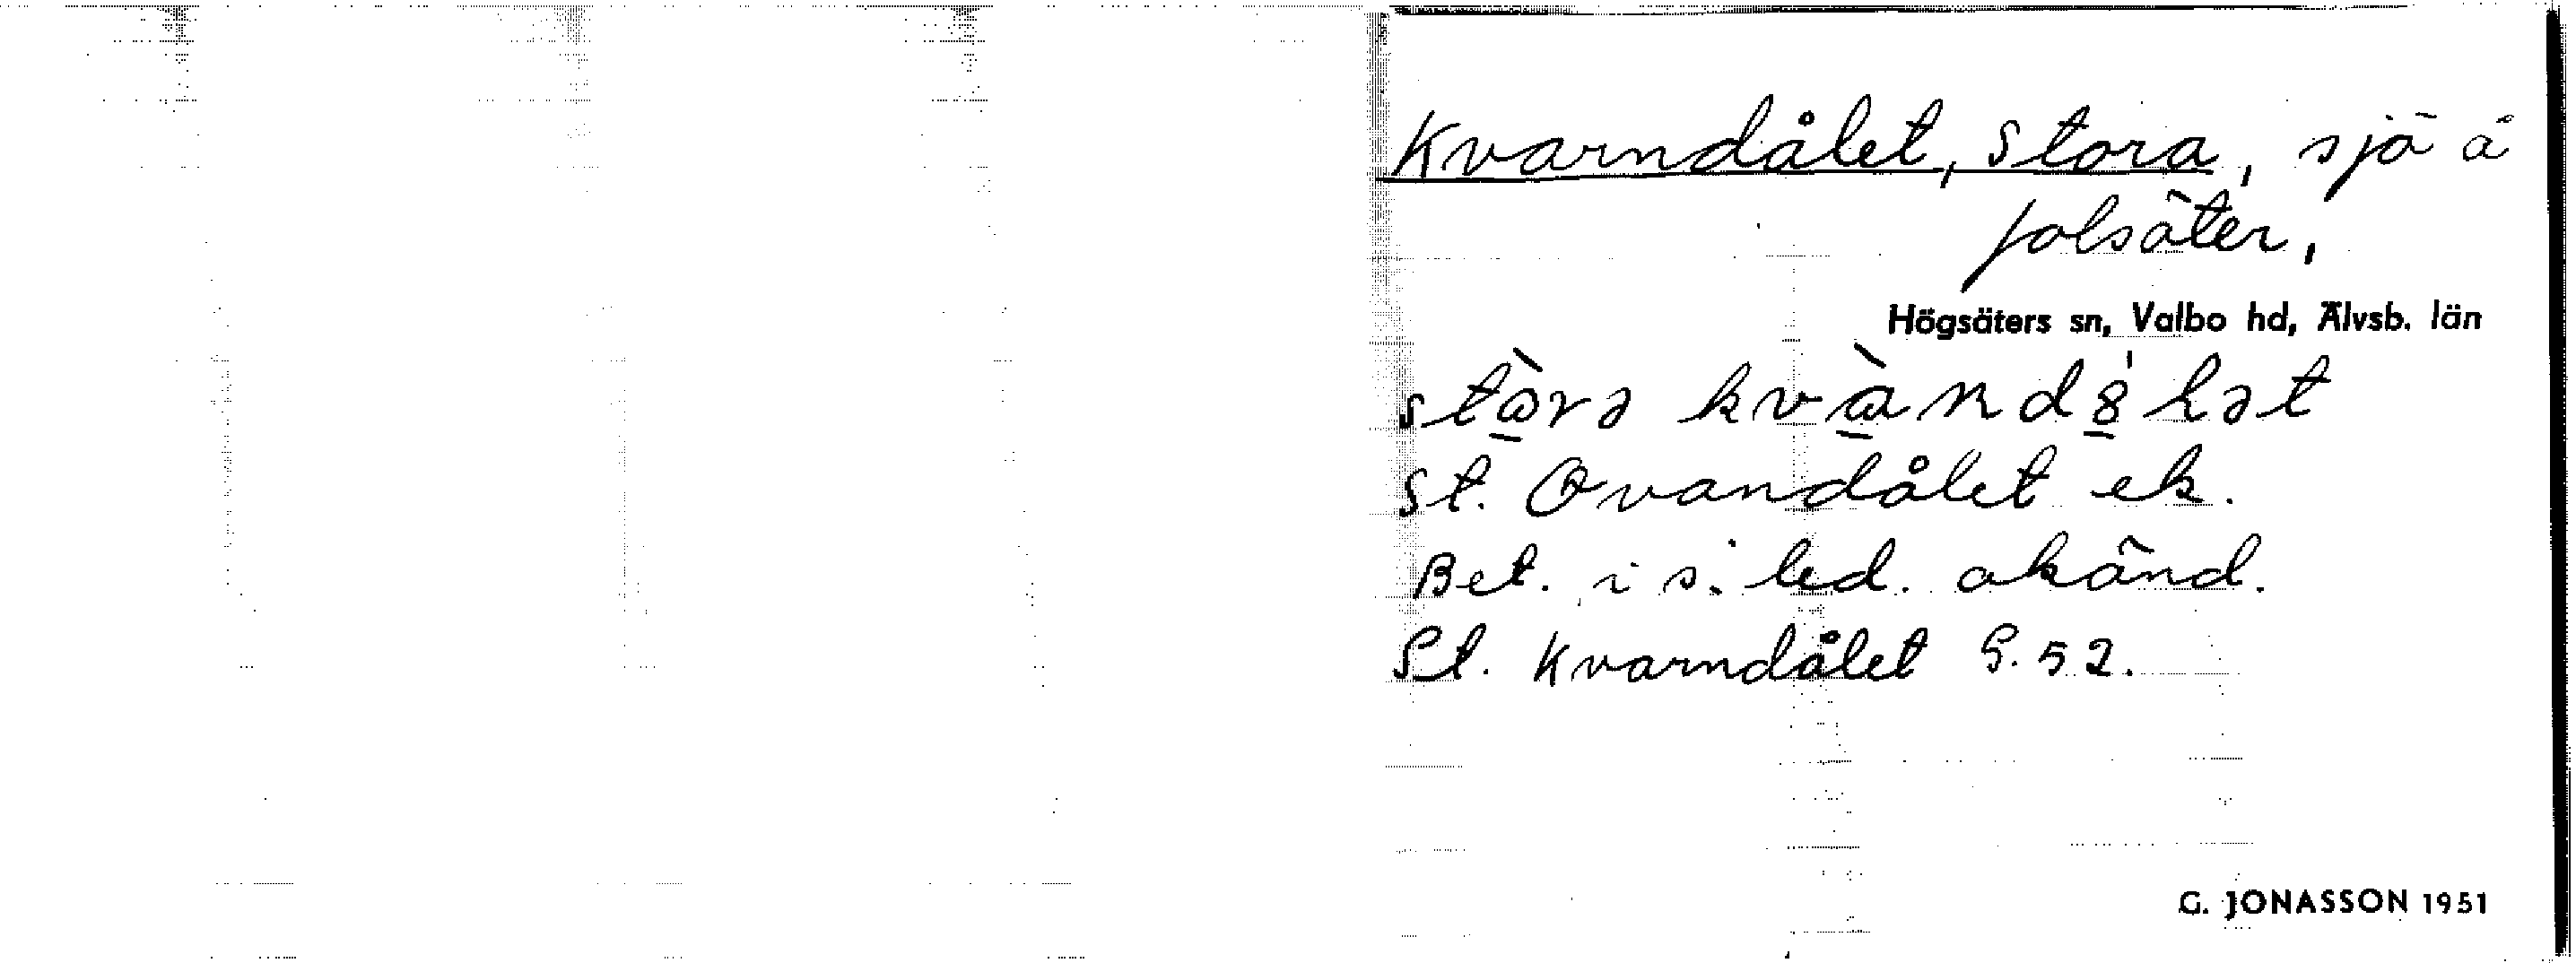 Kvarndålet, Stora, sjö å
Jolsäter,
Högsäters sn, Valbo hd, Älvsb. län
St. Qvandålet ek.
Bet. i s. led. okänd.
St. Kvarndålet G. 52.
G. JONASSON 1951